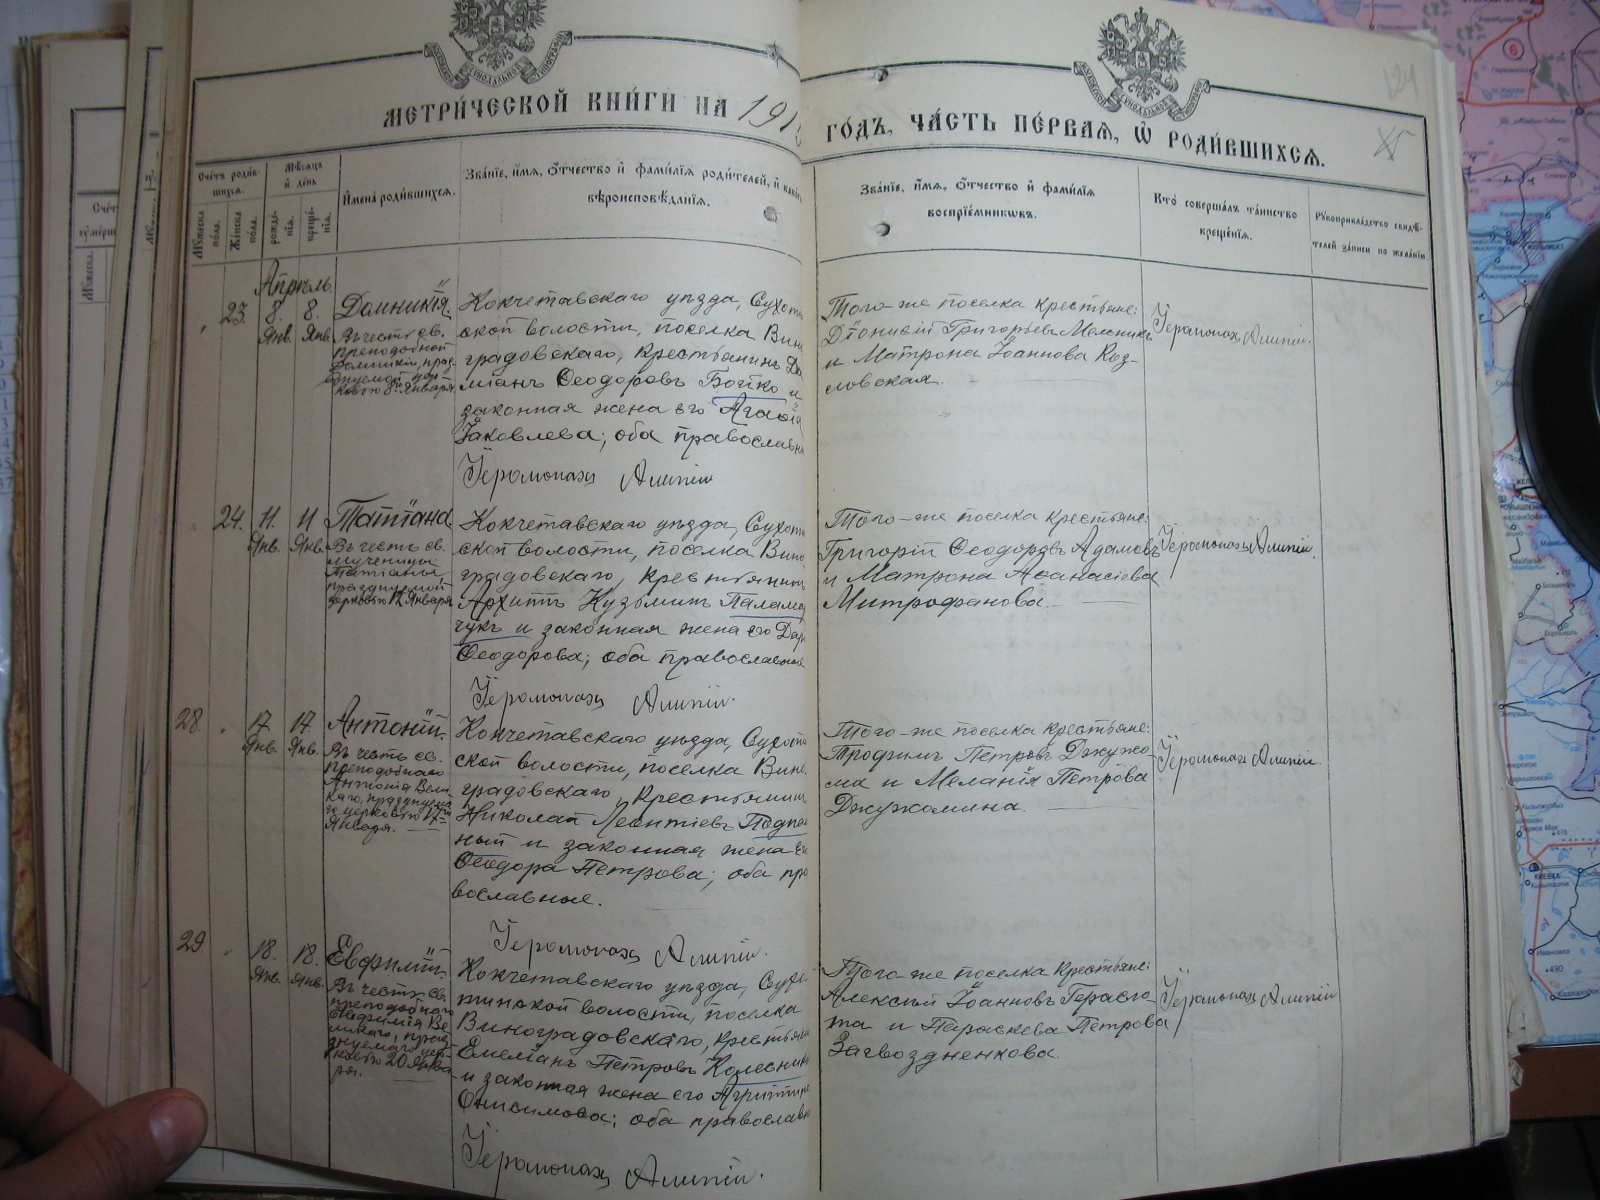 МЕТРИ́ЧЕСКОЙ КНИ́ГИ НА 191
ГО́ДЪ, ЧА́СТЬ ПЕ́РВАѦ, Ѡ҆ РОДИ́ВШИХСѦ.
124
Сче́тъ роди́вшихсѧ.
Мѣ́сѧцъ и҆ де́нь
И҆мена̀ роди́вшихсѧ.
Зва́нїе, и҆́мѧ, о҆́тчество и҆ фами́лїѧ роди́телей, и҆
вѣроисповѣ́данїѧ.
Зва́нїе, и҆́мѧ, о҆́тчество и҆ фами́лїѧ
воспрїе́мникѡвъ.
Кто̀ соверша́лъ та́инство
креще́нїѧ.
Рꙋкоприкла́дство свидѣ́телей за́писи по жела́нїю.
Мꙋ́жеска по́ла.
Же́нска по́ла.
рожде́нїѧ.
креще́нїѧ.
Апрѣль
23. 8. Янв. 8. Янв.
Домникія.
Въ честь св.
преподобной
Домникіи, праз-
днуемой цер-
ковью 8го Января.
Кокчетавскаго уѣзда, Сухоти
ской волости, поселка Вино
градовскаго, крестьянинъ Да
міанъ Ѳеодоровъ Бойко и
законная жена его Агаѳія
Іаковлева; оба православн
Іеромонахъ Алипій
Того-же поселка крестьяне:
Діонисій Григорьевъ Мельникъ
и Матрона Іоаннова Коз-
ловская.
Іеромонахъ Алипій.
24. 11. Янв. 11 Янв.
Татіана
Въ честь св.
мученицы
Татіаны,
празднуемой
церковью 12 Января
Кокчетавскаго уѣзда, Сухоти
ской волости, поселка Вино
градовскаго, крестьянинъ
Архипъ Кузьминъ Палама
чукъ и законная жена его Дар
Ѳеодорова; оба православные
Іеромонахъ Алипій.
Того-же поселка крестьяне:
Григорій Ѳеодоровъ Адамовъ
и Матрона Аѳанасіева
Митрофанова.
Іеромонахъ Алипій.
28. 17 Янв. 17 Янв.
Антоній.
Въ честь св.
преподобнаго
Антонія Вели-
каго, празднуема-
го церковью 17го
Января.
Кокчетавскаго уѣзда, Сухоти
ской волости, поселка Вино
градовскаго, крестьянинъ
Николай Леонтіевъ Подпа
ный и законная жена его
Ѳеодора Петрова; оба пра
вославные.
Іеромонахъ Алипій.
Того-же поселка крестьяне:
Трофимъ Петровъ Джужо
ма и Меланія Петрова
Джужомина.
Іеромонахъ Алипій.
29 18. Янв. 18. Янв.
Евфимій.
Въ честь св.
преподобнаго
Евфимія Ве-
ликаго, праз-
днуемаго цер-
ковью 20 Янва-
ря.
Кокчетавскаго уѣзда, Сухо-
тинской волости, поселка
Виноградовскаго, крестьяни
Емеліанъ Петровъ Колесник
и законная жена его Агриппина
Онисимова; оба православн
Іеромонахъ Алипій.
Того-же поселка крестьяне:
Алексій Іоанновъ Герасю-
та и Параскева Петрова
Загвоздненкова.
Іеромонахъ Алипій
КИЕВКА